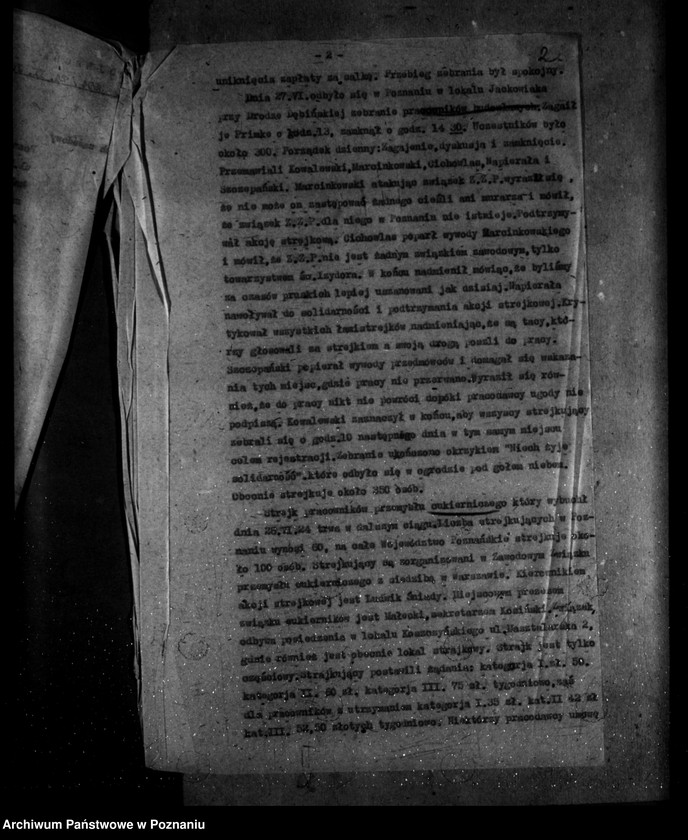 - 2 -
2.
uniknięcia zapłaty za salkę. Przebieg zebrania był spokojny.
Dnia 27.VI.odbyło się w Poznaniu w lokalu Jackowiaka
przy Drodze Dębińskiej zebranie pracowników budowlanych. Zagaił
je Primke o godz.13, zamknął o godz. 14 30. Uczestników było
około 300. Porządek dzienny: Zagajenie, dyskusja i zamknięcie.
Przemawiali Kowalewski, Marcinkowski, Cichowlas, Napierała i
Szczepański. Marcinkowski atakując związek Z.Z.P. wyraził się,
że nie może on zastępować żadnego cieśli ani murarza i mówił,
że związek Z.Z.P. dla niego w Poznaniu nie istnieje. Podtrzymy-
wał akcję strejkową. Cichowlas poparł wywody Marcinkowskiego
i mówił, że Z.Z.P. nie jest żadnym związkiem zawodowym, tylko
towarzystwem św. Izydora. W końcu nadmienił mówiąc, że byliśmy
za czasów pruskich lepiej uszanowani jak dzisiaj. Napierała
nawoływał do solidarności i podtrzymania akcji strejkowej. Kry-
tykował wszystkich łamistrejków nadmieniając, że są tacy, któ-
rzy głosowali za strejkiem a swoją drogą poszli do pracy.
Szczepański popierał wywody przedmówców i domagał się wskaza-
nia tych miejsc, gdzie pracy nie przerwano. Wyraził się rów-
nież, że do pracy nikt nie powróci dopóki pracodawcy ugody nie
podpiszą. Kowalewski zaznaczył w końcu, aby wszyscy strejkujący
zebrali się o godz. 10 następnego dnia w tym samym miejscu
celem rejestracji. Zebranie ukończono okrzykiem "Niech żyje
solidarność". które odbyło się w ogrodzie pod gołem niebem.
Obecnie strejkuje około 350 osób.
Strejk pracowników przemysłu cukierniczego który wybuchł
dnia 25.VI.24 trwa w dalszym ciągu. Liczba strejkujących w Poz-
naniu wynosi 60, na całe Województwo Poznańskie strejkuje oko-
ło 100 osób. Strejkujący są zorganizowani w Zawodowym Związku
przemysłu cukierniczego z siedzibą w Warszawie. Kierownikiem
akcji strejkowej jest Ludwik Śniady. Miejscowym prezesem
związku cukierników jest Małecki, sekretarzem Kosiński. Związek,
odbywa posiedzenia w lokalu Koszczyńskiego ul. Masztalarska 2,
gdzie również jest obecnie lokal strajkowy. Strajk jest tylko
częściowy. Strajkujący postawili żądania: kategorja I. zł. 50.
kategorja II. 60 zł. kategorja III. 75 zł. tygodniowo, zaś
dla pracowników z utrzymaniem kategorja I. 35 zł. kat. II 42 zł
kat. III. 52,50 złotych tygodniowo. Niektórzy pracodawcy umowę
Archiwum Państwowe w Poznaniu